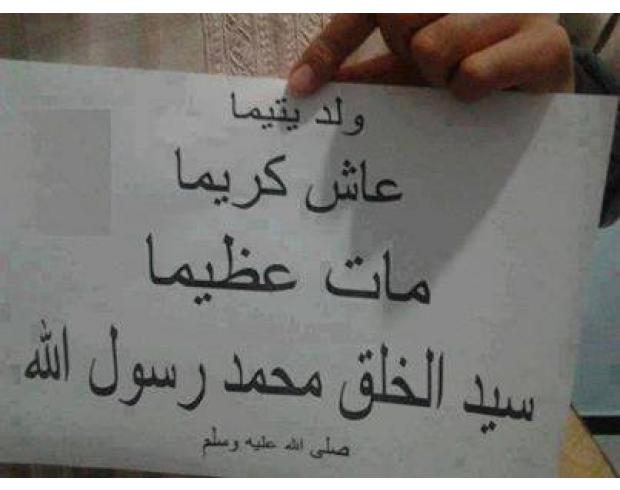 ولد يتيما
عاش كريما
مات عظيما
سيد الخلق محمد رسول الله
صلى الله عليه وسلم